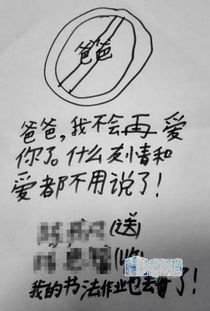 爸爸
爸爸,我不会再爱
你了。什么友情和
爱都不用说了!
(送)
(收)
我的书法作业也去了!